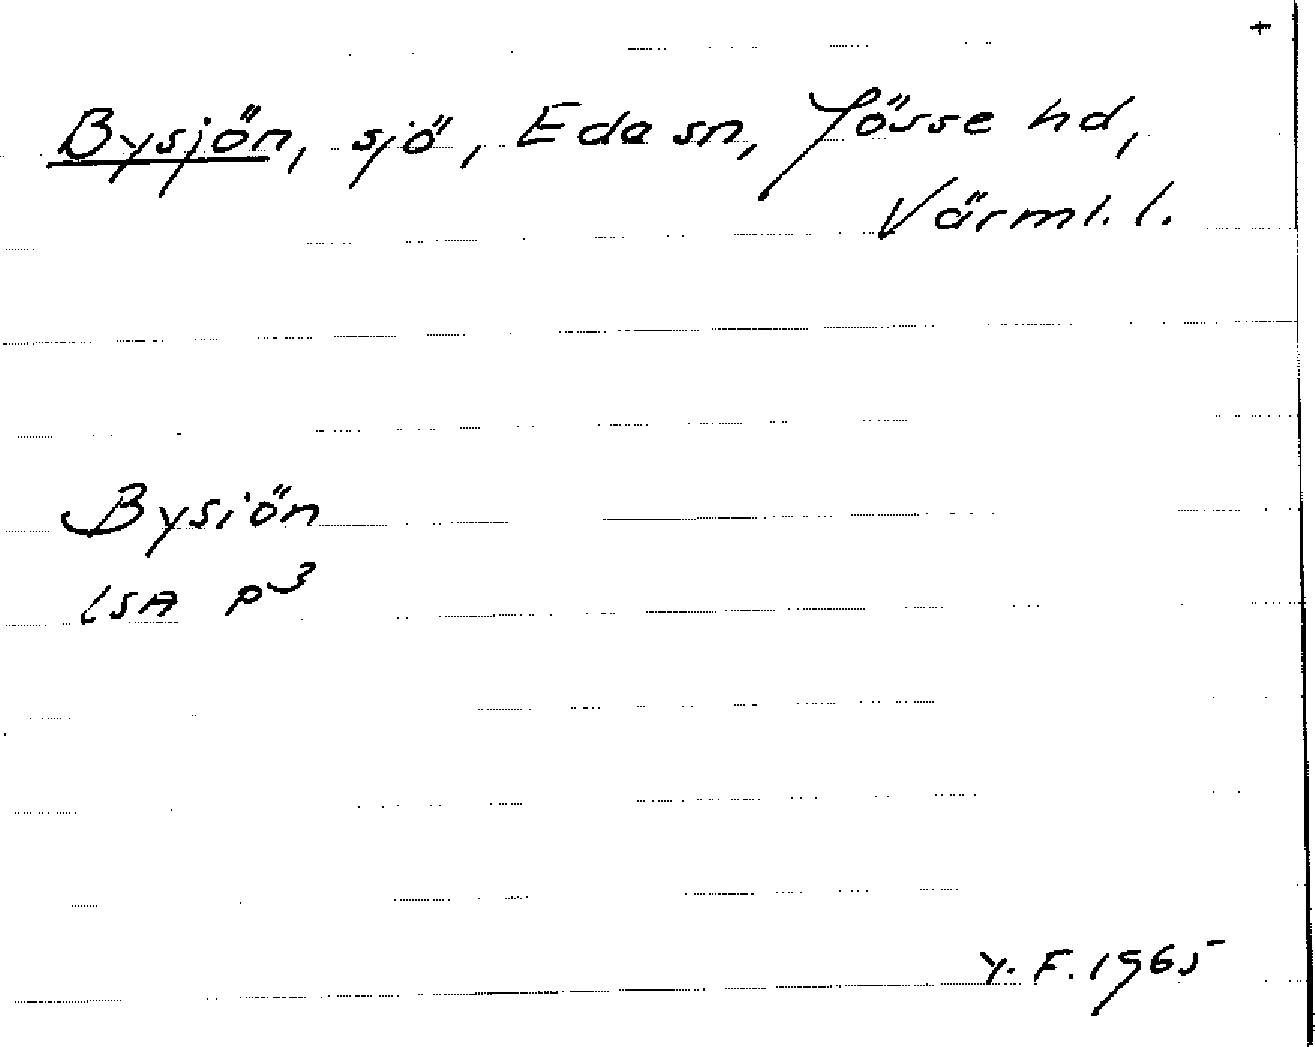 +
Bysjön, sjö, Eda sn, Jösse hd,
Värml. l.
Bysiön
LSA P3
Y. F. 1965